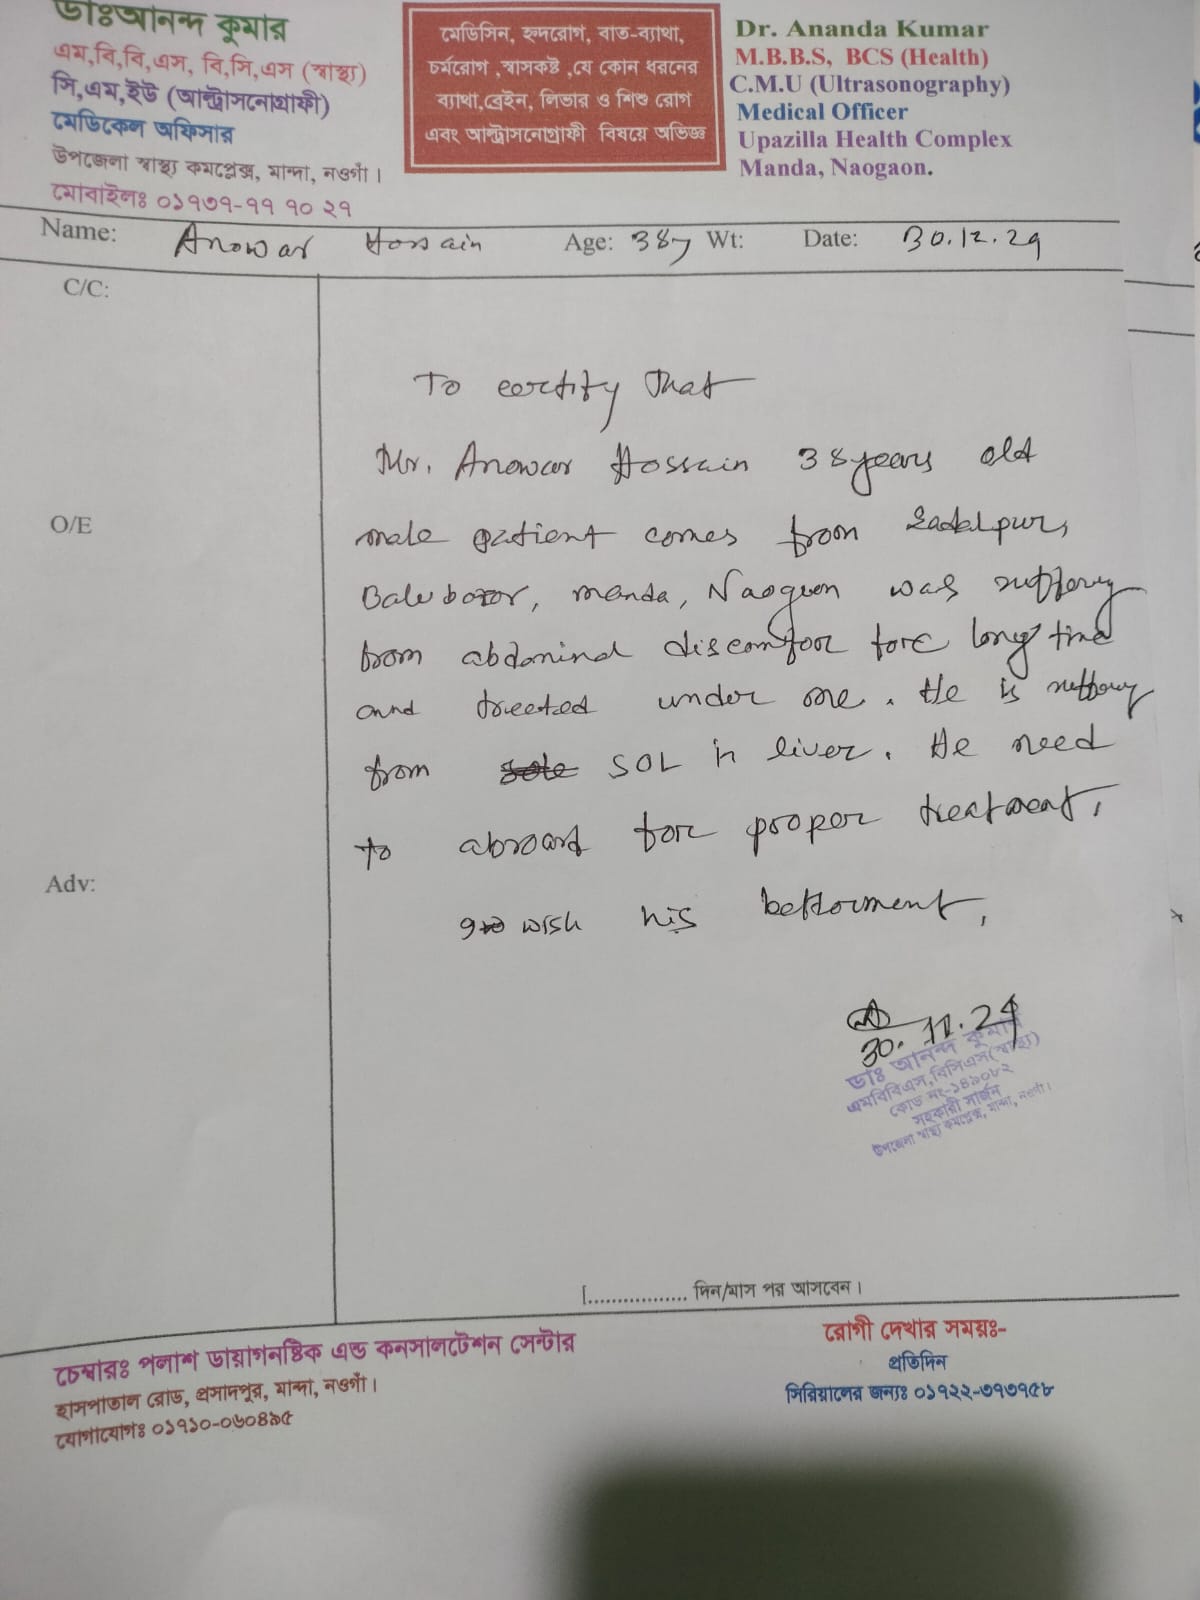 ডাঃআনন্দ কুমার
এম,বি,বি,এস, বি,সি,এস (স্বাস্থ্য)
সি,এম,ইউ (আল্ট্রাসনোগ্রাফী)
মেডিকেল অফিসার
উপজেলা স্বাস্থ্য কমপ্লেক্স, মান্দা, নওগাঁ।
মোবাইলঃ ০১৭৩৭-৭৭ ৭০ ২৭
মেডিসিন, হৃদরোগ, বাত-ব্যাথা,
চর্মরোগ ,শ্বাসকষ্ট ,যে কোন ধরনের
ব্যাথা,ব্রেইন, লিভার ও শিশু রোগ
এবং আল্ট্রাসনোগ্রাফী বিষয়ে অভিজ্ঞ
Dr. Ananda Kumar
M.B.B.S, BCS (Health)
C.M.U (Ultrasonography)
Medical Officer
Upazilla Health Complex
Manda, Naogaon.
Name: Anowar Hossain Age: 38y Wt: Date: 30.12.24
C/C:
To certify that
Mr. Anowar Hossain 38years old
O/E
male patient comes from
manda, Naogaon was suffering
from abdominal discomfor fore long time
and treeted under me. He is suffering
from SOL in liver. He need
to abroad for proper treatment.
Adv:
wish his betterment.
30. 12. 24
ডাঃ আনন্দ কুমার
এমবিবিএস,বিসিএস(স্বাস্থ্য)
কোড নং-১৪৯০৮২
সহকারী সার্জন
উপজেলা স্বাস্থ্য কমপ্লেক্স, মান্দা, নওগাঁ।
[................. দিন/মাস পর আসবেন।
চেম্বারঃ পলাশ ডায়াগনষ্টিক এন্ড কনসালটেশন সেন্টার
হাসপাতাল রোড, প্রসাদপুর, মান্দা, নওগাঁ।
যোগাযোগঃ ০১৭১০-০৬০৪৯৫
রোগী দেখার সময়ঃ-
প্রতিদিন
সিরিয়ালের জন্যঃ ০১৭২২-৭৭৩৭৫৮